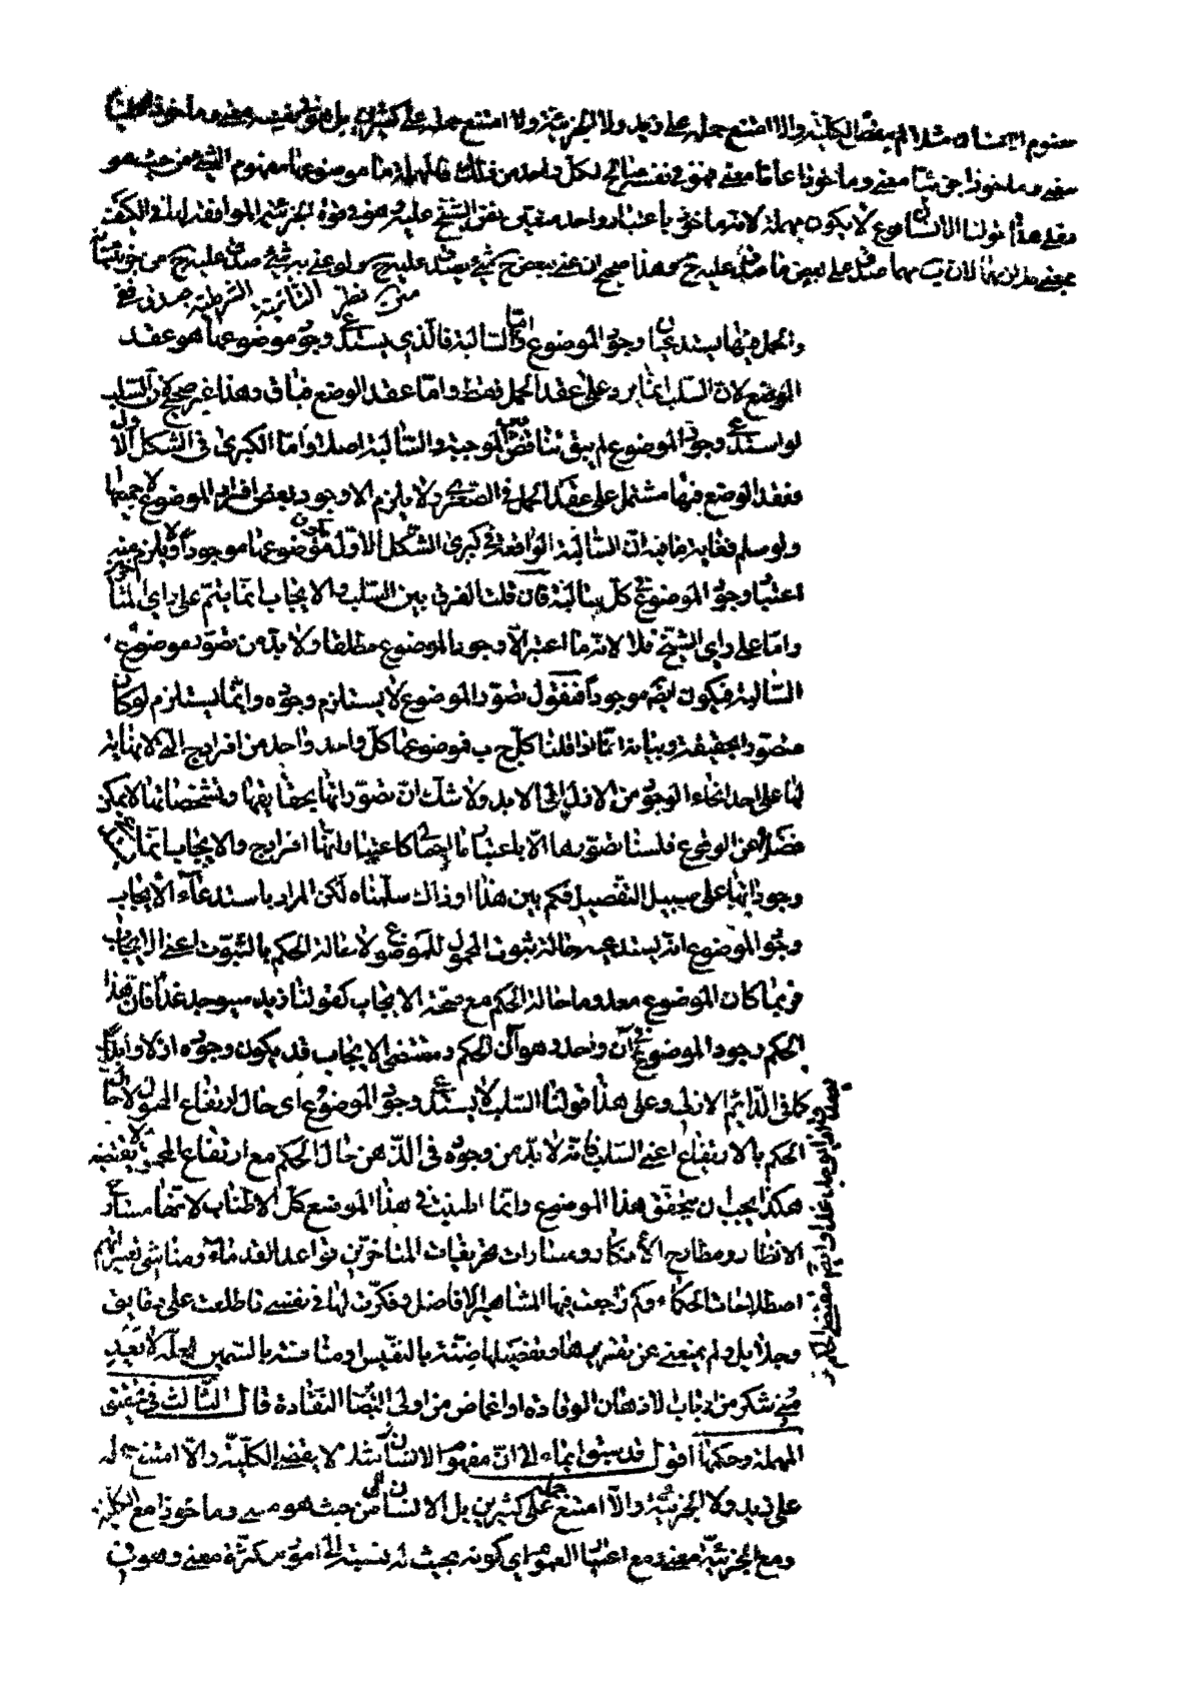 مفهوم الانسان مثلا لم يقتض الكلية والا امتنع حمله على زيد ولا الجزئية ولا امتنع حمله على كثيرين بل هو في نفسه معنى وماخوذا
معنى وماخوذا جزئيا معنى وماخوذا عاما معنى فهو في نفسه صالح لكل واحد من ذلك فالمهملة ما موضوعها مفهوم الشيء من حيث هو
فعلى هذا قولنا الانسان نوع لا يكون مهملة لانه ماخوذ باعتبار واحد معين نص الشيخ عليه وهو في قوة الجزئية الموافقة لها في الكيف
بمعنى تلازمهما لان ب مهما صدق على بعض ما صدق عليه ج وهذا صحيح ان عنى ببعض ج شيء يصدق عليه ج ولو عنى به شيء صدق عليه ج من جزئياته
منع نظر الثانية الشرطية صدق في
والحمل فيها يستدعيان وجود الموضوع واما السالبة فالذي يستدعي وجود موضوعها هو عقد
الوضع لان السلب انما يرد على عقد الحمل فقط واما عقد الوضع فباق وهذا غير صحيح لان السلب
لو استدعى وجود الموضوع لم يبق تناقض بين الموجبة والسالبة اصلا واما الكبرى في الشكل الاول
فعقد الوضع فيها مشتمل على عقد الحمل في الصغرى ولا يلزم الا وجود بعض افراد الموضوع لا جميعها
ولو سلم فغاية ما فيه ان السالبة الواقعة في كبرى الشكل الاول يكون موضوعها موجودا ولا يلزم منه
اعتبار وجود الموضوع في كل سالبة فان قلت الفرق بين السلب والايجاب انما يتم على راي المتاخرين
واما على راي الشيخ فلا لانه ما اعتبر الا وجود الموضوع مطلقا ولا بد من تصور موضوع
السالبة فيكون ايضا موجودا فنقول تصور الموضوع لا يستلزم وجوده وانما يستلزم لو كان
متصورا بحقيقته وبيانه انا اذا قلنا كل ج ب فموضوعها كل واحد واحد من افراد ج التي لا نهاية
لها على احد انحاء الوجود من الازل الى الابد ولا شك ان تصوراتها بحقايقها وتشخصاتها لا يمكن
فضلا عن الوقوع فلسنا نتصورها الا باعتبار ما ايضا كاعتبار انها افراد ج والايجاب انما
وجوداتها على سبيل التفصيل فكم بين هذا وذاك سلمناه لكن المراد باستدعاء الايجاب
وجود الموضوع انه يستدعيه حالة ثبوت المحمول للموضوع لا حالة الحكم بالثبوت اعني الايجاب
فربما كان الموضوع معدوما حالة الحكم مع صحة الايجاب كقولنا زيد سيوجد غدا فان هذا
الحكم وجود الموضوع في آن واحد وهو آن الحكم ومقتضى الايجاب قد يكون وجوده ازلا وابدا
كما في الدائم الازلي وعلى هذا قولنا السلب لا يستدعي وجود الموضوع اي حال ارتفاع المحمول لا حال
الحكم بالارتفاع اعني السلب فانه لا بد من وجوده في الذهن حال الحكم مع ارتفاع المحمول لا يقتضيه
هكذا يجب ان يتحقق هذا الموضوع وانما اطنبت في هذا الموضع كل الاطناب لانها مستأثر
الانظار ومطارح الافكار ومنارات تحريفات المتاخرين قواعد القدماء ومناشئ تغييراتهم
اصطلاحات الحكماء وكم راجعت فيها المشاهير الافاضل وفكرت لها في نفسي فاطلعت على دقايق
وجلايل ولم يمنعني عن تقريرها وتفصيلها ضنة بالنفيس او منافسة بالثمين لعله لا تعبد
مني شكر من ارباب الاذهان الوقادة او اغماض من اولي البصائر النقادة قال الثالث في تحقيق
المهملة وحكمها اقول قد سبق ايماء الى ان مفهوم الانسان مثلا لا يقتضي الكلية والا امتنع حمله
على زيد ولا الجزئية والا امتنع حمله على كثيرين بل الانسان من حيث هو معنى وماخوذا مع الكلية
ومع الجزئية معنى ومع اعتبار العموم اي كونه بحيث له نسبة الى امور كثيرة معنى وهو في